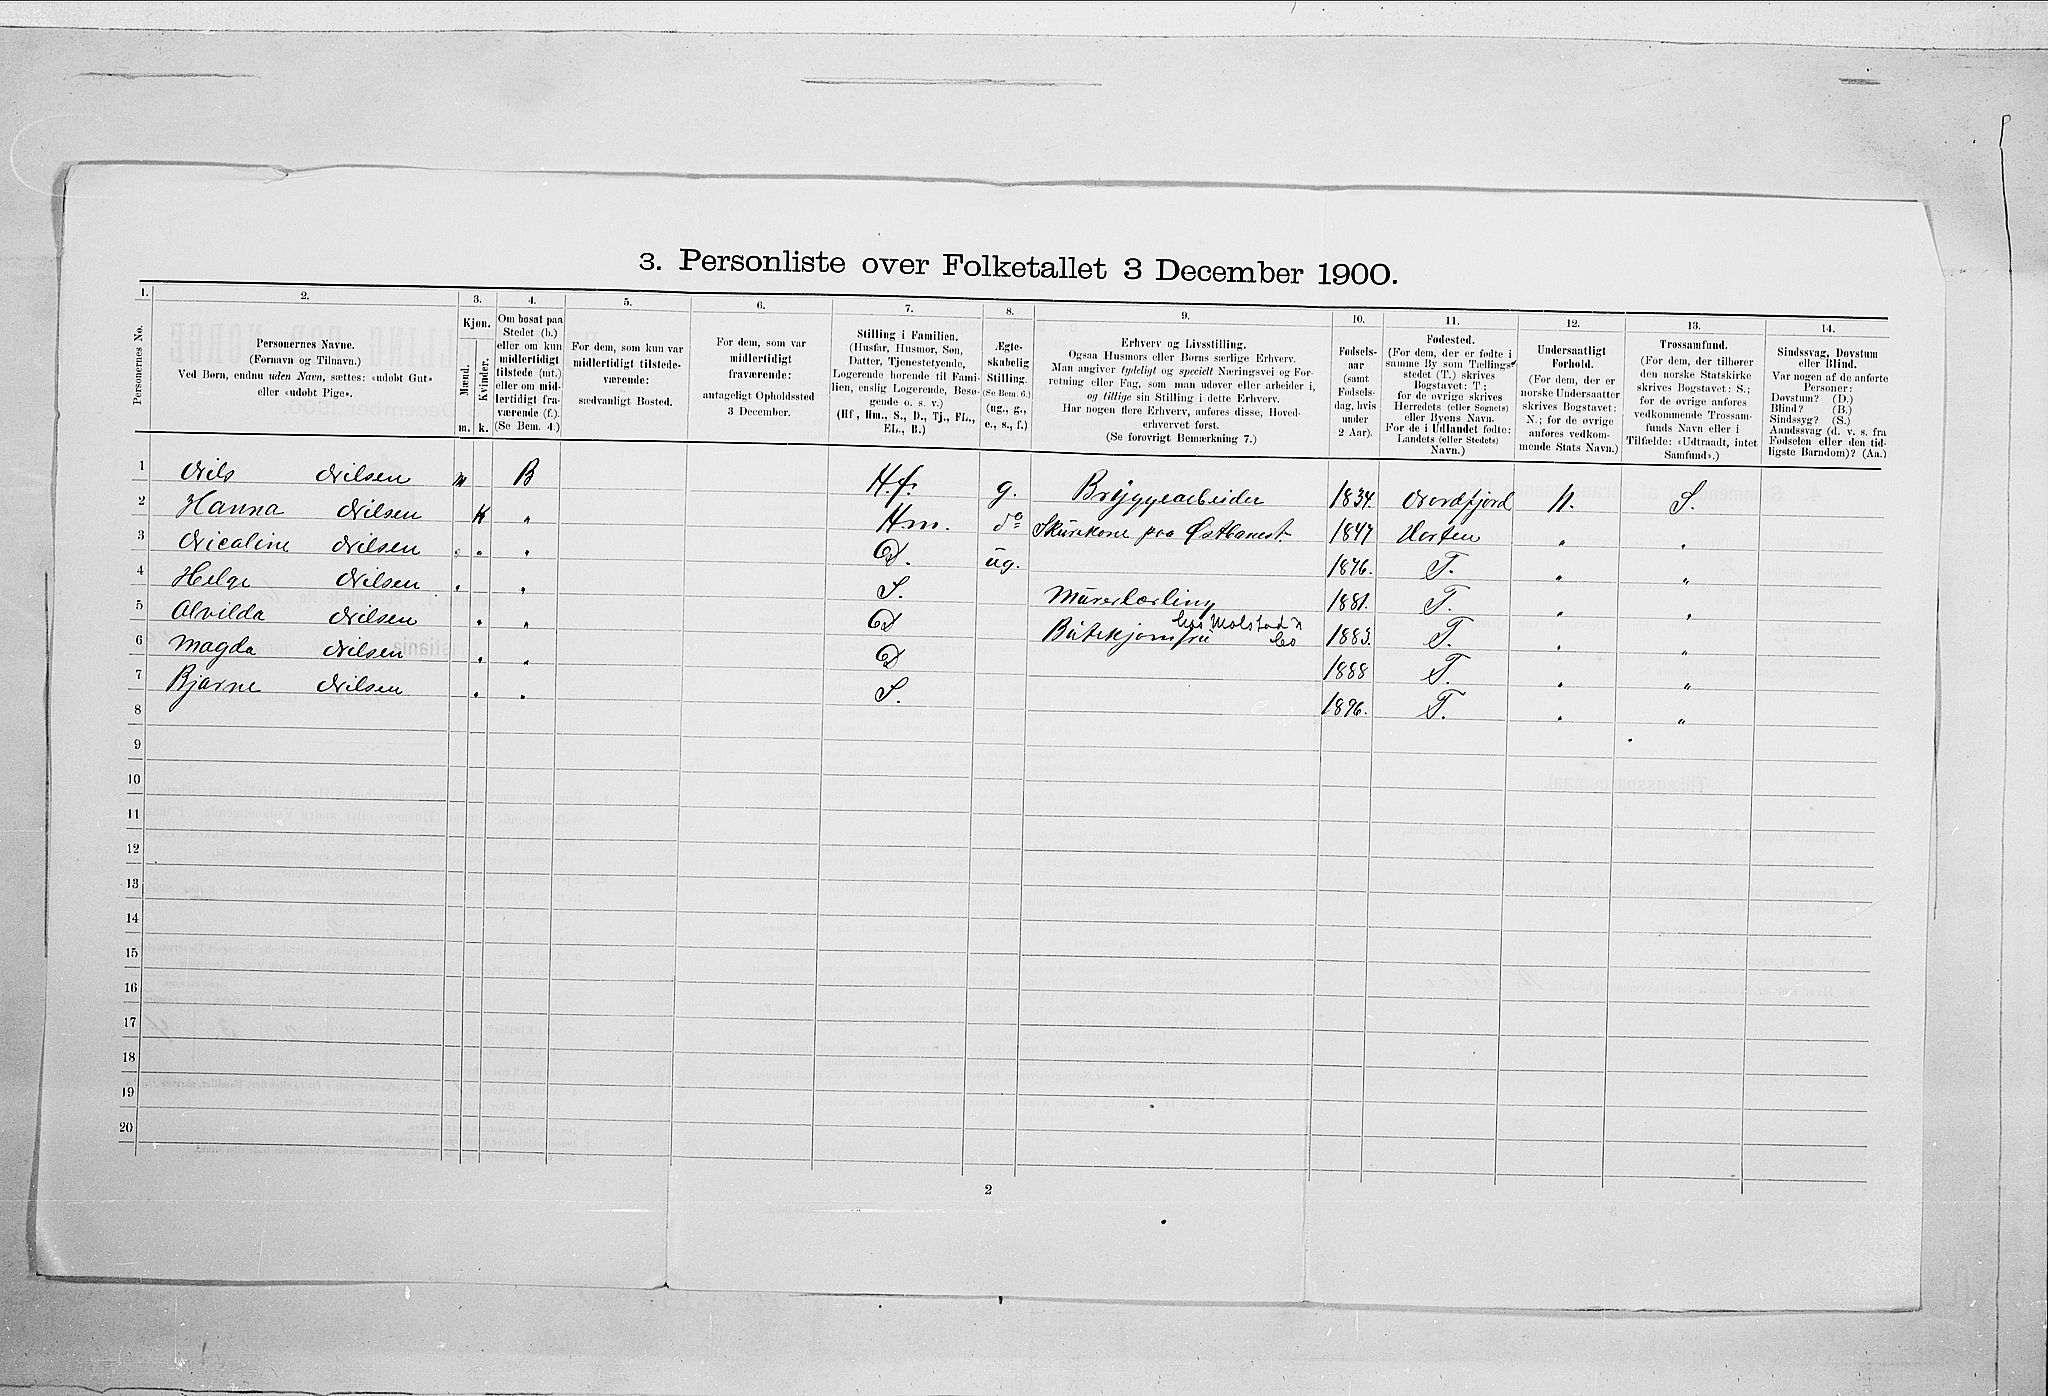 3. Personliste over Folketallet 3 December 1900.
1. 2. 3. 4. 5. 6. 7. 8. 9. 10. 11. 12. 13. 14.
Personernes No.
Personernes Navne.
(Fornavn og Tilnavn.)
Ved Børn, endnu uden Navn, sættes: «udøbt Gut»
eller «udøbt Pige».
Kjøn.
Mænd.
Kvinder.
m. k.
Om bosat paa
Stedet (b.)
eller om kun
midlertidigt
tilstede (mt.)
eller om mid-
lertidigt fra-
værende (f.)
(Se Bem. 4.)
For dem, som kun var
midlertidigt tilstede-
værende:
sædvanligt Bosted.
For dem, som var
midlertidigt
fraværende:
antageligt Opholdssted
3 December.
Stilling i Familien.
(Husfar, Husmor, Søn,
Datter, Tjenestetyende,
Logerende hørende til Fami-
lien, enslig Logerende, Besø-
gende o. s. v.)
(Hf., Hm., S., D., Tj., FL.,
EL., B.)
Ægte-
skabelig
Stilling.
(Se Bem. 6.)
(ug., g.,
e., s., f.)
Erhverv og Livsstilling.
Ogsaa Husmors eller Børns særlige Erhverv.
Man angiver tydeligt og specielt Næringsvei og For-
retning eller Fag, som man udøver eller arbeider i,
og tillige sin Stilling i dette Erhverv.
Har nogen flere Erhverv, anføres disse, Hoved-
erhvervet først.
(Se forøvrigt Bemærkning 7.)
Fødsels-
aar
(samt
Fødsels-
dag, hvis
under
2 Aar).
Fødested.
(For dem, der er fødte i
samme By som Tællings-
stedet (T.) skrives
Bogstavet: T;
for de øvrige skrives
Herredets (eller Sognets)
eller Byens Navn.
For de i Udlandet fødte:
Landets (eller Stedets)
Navn.)
Undersaatligt
Forhold.
(For dem, der er
norske Undersaatter
skrives Bogstavet:
N.; for de øvrige
anføres vedkom-
mende Stats Navn.)
Trossamfund.
(For dem, der tilhører
den norske Statskirke
skrives Bogstavet: S.;
for de øvrige anføres
vedkommende Trossam-
funds Navn eller i
Tilfælde: «Udtraadt, intet
Samfund».)
Sindssvag, Døvstum
eller Blind.
Var nogen af de anførte
Personer:
Døvstum? (D.)
Blind? (B.)
Sindssyg? (S.)
Aandssvag (d. v. s. fra
Fødselen eller den tid-
ligste Barndom)? (Aa.)
1 Nils Nilsen m B H.f. g. Bryggearbeider 1834. Nordfjord N. S.
2 Hanna Nilsen K " Hm. do Skurekone paa Østbanest. 1847 Horten " "
3 Nicoline Nilsen " " D. ug. 1876. T. " "
4 Helge Nilsen " " S. Murerlærling 1881. T. " "
5 Alvilda Nilsen " " D Butikjomfru hos Molstad & Co 1883. T. " "
6 Magda Nilsen " " D 1888 T. " "
7 Bjarne Nilsen " " S. 1896. T. " "
8
9
10
11
12
13
14
15
16
17
18
19
20
2